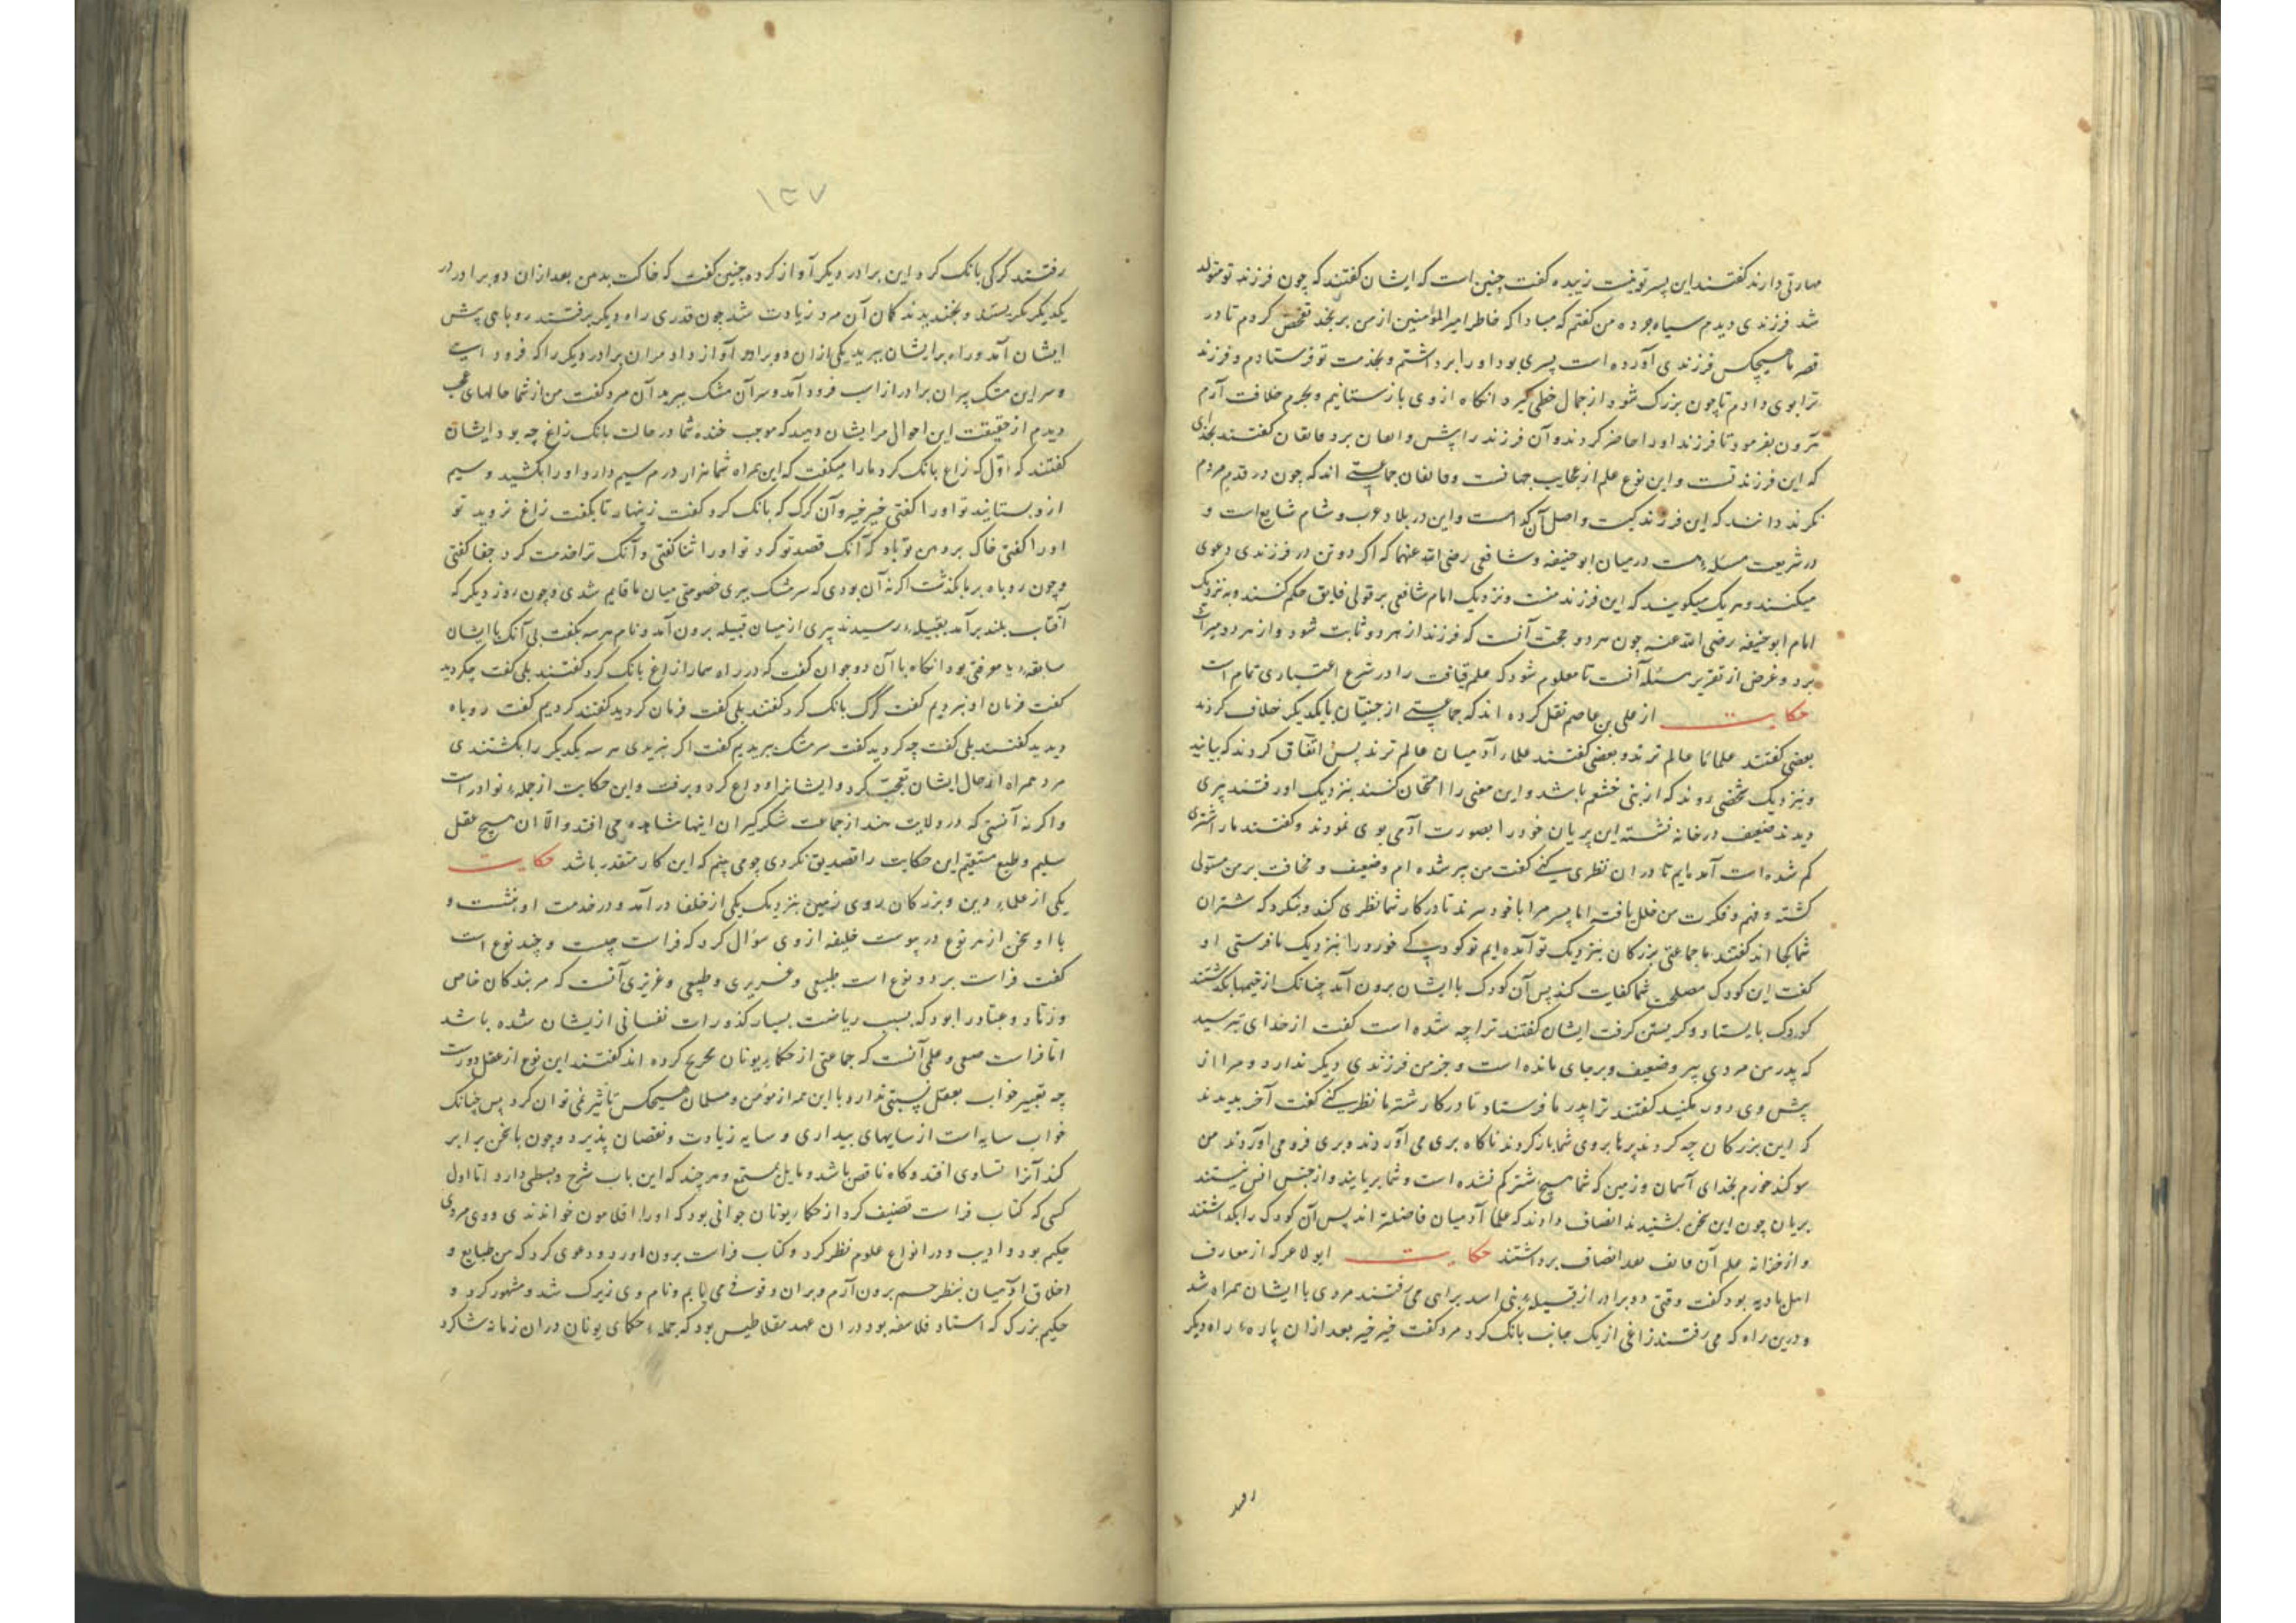 مهارتی دارند گفتند این پسر تو نیست زبیده گفت چنین است که ایشان گفتند که چون فرزند تو متولد
شد فرزندی دیدم سیاه جرده من گفتم که مبادا که خاطر امیر المؤمنین از من برنجد تفحص کردم تا در
قصر ما هیچکس فرزندی آورده است پسری بود او را برداشتم و بخدمت تو فرستادم و فرزند
ترا بوی دادم تا چون بزرگ شود از جمال خطی گیرد انگاه از وی بازستانیم و بحرم خلافت آرم
هرون بفرمود تا فرزند او را حاضر کردند و آن فرزند را پیش و بردند قایفان گفتند بخدای
که این فرزند تست و این نوع علم از عجایب جهانست و قایفان جماعتی اند که چون در قدم مردم
نگرند دانند که این فرزند کیست و اصل آن کدام است و این در بلاد عرب و شام شایع است و
در شریعت مسئله هست در میان ابو حنیفه و شافعی رضی الله عنهما که اگر دو تن در فرزندی دعوی
میکنند و هر یک میگویند که این فرزند منست و نزدیک امام شافعی بر قولی قایق حکم کنند و به نزدیک
امام ابو حنیفه رضی الله عنه چون هر دو حجت آنست که فرزند از هر دو ثابت شود و از هر دو میراث
برد و غرض از تقریر مسئله آنست تا معلوم شود که علم قیافت را در شرع اعتباری تمام است
حکایت از علی بن عاصم نقل کرده اند که جماعتی از جنیان با یکدیگر خلاف کردند
بعضی گفتند علماء ما عالم ترند و بعضی گفتند علماء آدمیان عالم ترند پس اتفاق کردند که بیایید
و بنزدیک شخصی روند که از بنی خثعم باشد و این معنی را امتحان کنند بنزدیک او رفتند پیری
دیدند ضعیف در خانه نشسته این پریان خود را بصورت آدمی بوی نمودند و گفتند ما را اشتری
گم شده است آمده ایم تا در ان نظری کنی گفت من پیر شده ام و ضعیف و مخافت بر من مستولی
گشته و فهم و فکرت من خلل یافته اما پسر مرا با خود برند تا در کار شما نظری کند و بنگرد که شتران
شما کجا اند گفتند ما جماعتی بزرگان بنزدیک تو آمده ایم تو کودکی خورد را بنزدیک ما فرستی او
گفت این کودک مصلحت شما کفایت کند پس آن کودک با ایشان برون آمد چنانک از خیمها بگذشتند
کودک بایستاد و گریستن گرفت ایشان گفتند ترا چه شده است گفت از خدای بترسید
که پدر من مردی پیر و ضعیف و بر جای مانده است و جز من فرزندی دیگر ندارد و مرا از
پیش وی دور مکنید گفتند ترا پدر ما فرستاد تا در کار شتر ما نظر کنی گفت آخر بدیدند
که این بزرگان چه کردند پرها بروی شما باز کردند ناگاه پری می آوردند و پری فرو می آوردند من
سوگند خورم بخدای آسمان و زمین که شما هیچ شتر گم نشده است و شما پریانید و از جنس انس نیستند
پریان چون این سخن بشنیدند انصاف دادند که علماء آدمیان فاضلتر اند پس آن کودک را بگذاشتند
و از خزانه علم آن قایف نقد انصاف برداشتند حکایت ابو لاعر که از معارف
اهل بادیه بود گفت وقتی دو برادر از قبیله بنی اسد براهی می رفتند مردی با ایشان همراه شد
و درین راه که می رفتند زاغی از یک جانب بانگ کرد مرد گفت خیر خیر بعد از ان پاره راه دیگر
رفتند
۱۲۷
رفتند گرگی بانگ کرد این برادر دیگر آواز کرده چنین گفت که خاکت بدهن بعد از ان دو برادر در
یکدیگر نگریستند و بخندیدند گمان آن مرد زیادت شد چون قدری راه دیگر برفتند روباهی پیش
ایشان آمد و راه بر ایشان ببرید یکی از ان دو برادر آواز داد مران برادر دیگر را که فرود ای
و سر این مشک ببر ان برادر از اسب فرود آمد و سر آن مشک ببرید آن مرد گفت من از شما حالهای عجب
دیدم از حقیقت این احوال مرا نشان دهید که موجب خنده شما در حالت بانک زاغ چه بود ایشان
گفتند که اول که زاغ بانک کرد ما را میگفت که این همراه شما هزار درم سیم دارد او را بکشید و سیم
ازو بستانید تو او را گفتی خیر خیر و آن گرگ که بانک کرد گفت زینهار تا بگفت زاغ نروید تو
او را گفتی خاک بر دهن تو باد که آنک قصد تو کرد تو او را ثنا گفتی و آنک ترا خدمت کرد جفا گفتی
و چون روباه بر ما بگذشت اگر نه آن بودی که سر مشک ببری خصومتی میان ما قایم شدی و چون روز دیگر که
آفتاب بلند بر آمد بقبیله رسیدند پیری از میان قبیله برون آمد و نام هر سه بگفت بی آنک با ایشان
سابقه یا معرفتی بود انگاه با آن دو جوان گفت که در راه شما را زاغ بانک کرد گفتند بلی گفت چه کردید
گفت فرمان او نبردیم گفت گرگ بانک کرد گفتند بلی گفت فرمان کردید گفتند کردیم گفت روباه
دیدید گفتند بلی گفت چه کردید گفت سر مشک ببریدیم گفت اگر نبریدی هر سه یکدیگر را بکشتندی
مرد همراه از حال ایشان تعجب کرد و ایشانرا وداع کرد و برفت و این حکایت از جمله نوادر است
و اگر نه آنستی که در ولایت هند از جماعت شکر گیران اینها مشاهده می افتد و الا ان هیچ عقل
سلیم و طبع مستقیم این حکایت را تصدیق نکردی چو می بینم که این کار متقدر باشد حکایت
یکی از علماء دین و بزرکان روی زمین بنزدیک یکی از خلفا در آمد و در خدمت او بنشست و
با او سخن از هر نوع در پیوست خلیفه از وی سؤال کرد که فراست چیست و چند نوع است
گفت فراست بر دو نوع است طبیعی و غریزی آنست که مر بندگان خاص
و زهاد و عباد را بود که بسبب ریاضت بسیار کدورات نفسانی ازیشان شده باشد
اما فراست صنعی و علمی آنست که جماعتی از حکماء یونان تخریج کرده اند گفتند این نوع از عقل دورست
چه تعبیر خواب بعقل نسبتی ندارد با این همه از مؤمن و مسلمان هیچکس تاثیر نمی توان کرد پس چنانک
خواب سایه است از سایهای بیداری و سایه زیادت و نقصان پذیرد و چون با سخن برابر
کند آنرا تساوی افتد و گاه ناقص باشد و مایل مستمع و هر چند که این باب شرح و بسطی دارد اما اول
کسی که کتاب فراست تصنیف کرد از حکماء یونان جوانی بود که او را افلامون خواندندی و وی مردی
حکیم بود و ادیب و در انواع علوم نظر کرد و کتاب فراست برون اورد و دعوی کرد که من طبایع و
اخلاق آدمیان بنظر حس برون آرم و بران وقوفی می یابم و نام وی زیرک شد و مشهور کرد و
حکیم بزرگ که استاد فلاسفه بود در ان عهد بقراطیس بود که جمله حکمای یونان دران زمانه شاگرد